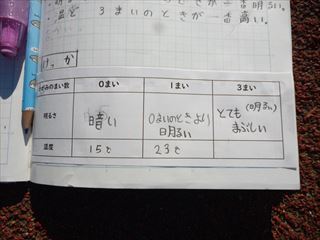 温ど 3まいのときが一番高い。
けっか
かがみのまい数 0まい 1まい 3まい
明るさ 暗い 0まいのときより明るい とてもまぶしい(明るい)
温度 15℃ 23℃